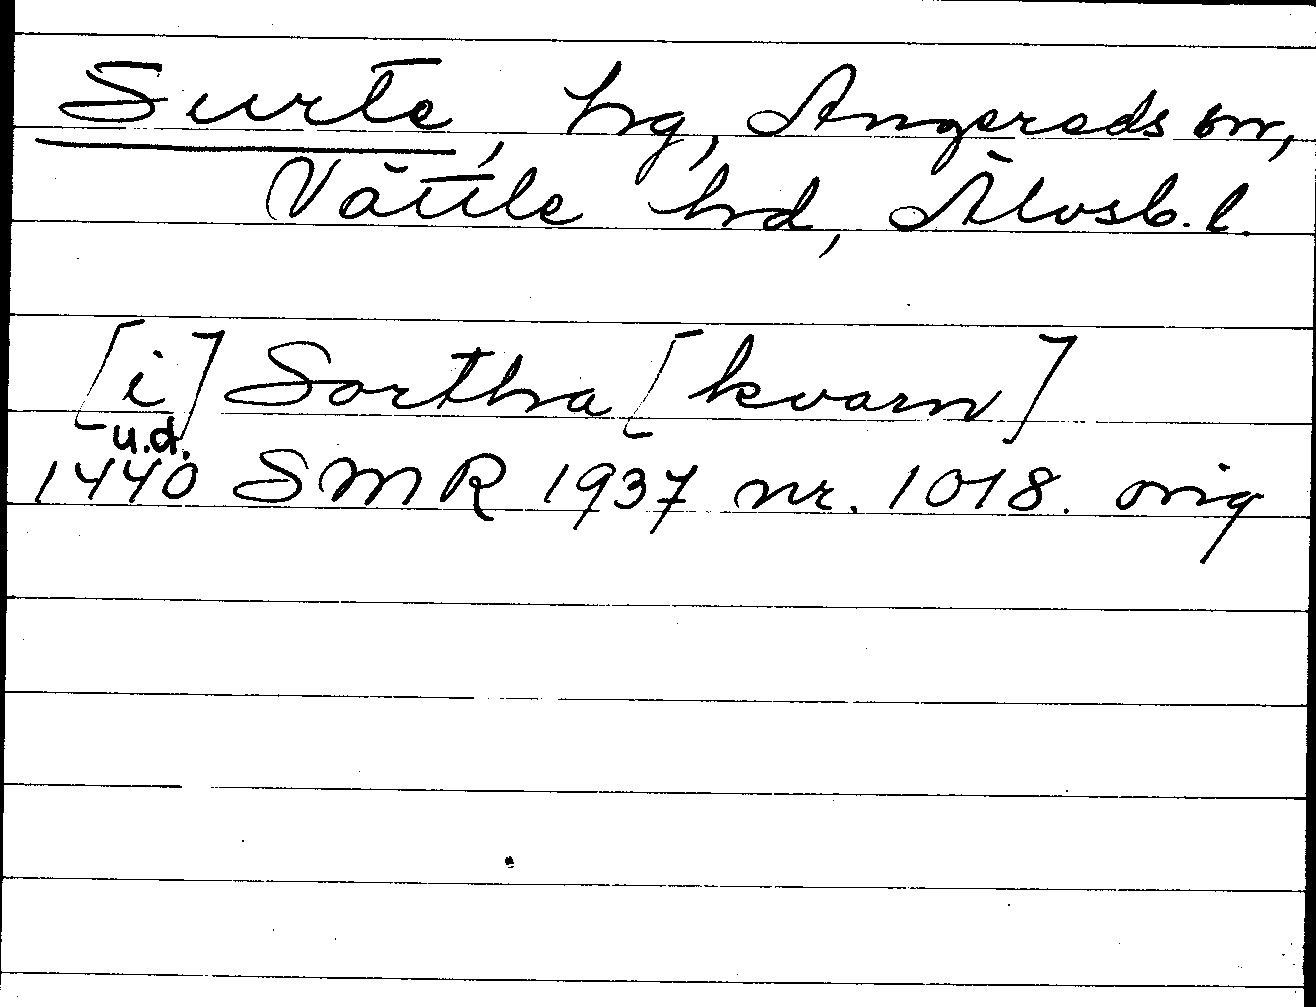 Surte, hg, Angereds sn,
Vättle hd, Älvsb. l.
[i] Sortha [kvarn]
u.d.
1440 SMR 1937 nr. 1018. orig